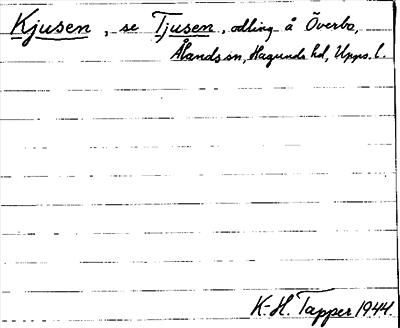 Kjusen, se Tjusen, odling å Överbo,
Ålands sn, Hagunda hd, Upps. l.
K-H. Tapper 1944.